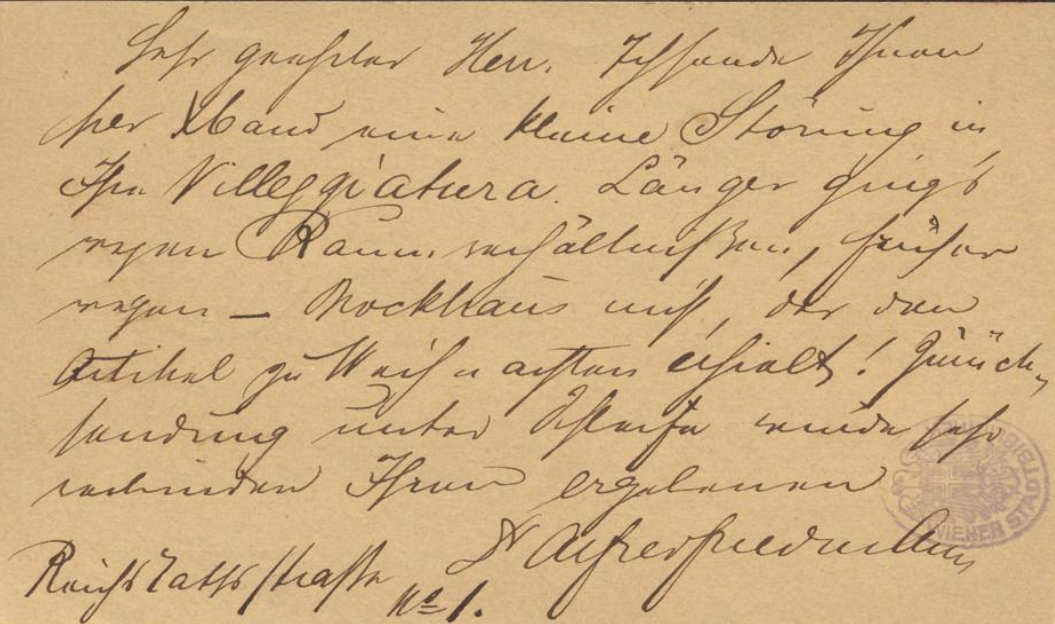 Sehr geehrter Herr. Ich sende Ihnen
per Xband eine kleine Störung in
Ihre Villeggiatura. Länger ging's
wegen Raumverhältnißen, früher
wegen – Brockhaus nicht, der den
Artikel zu Weihnachten erhielt! Zurück-
sendung unter Schleife würde sehr
verbinden Ihren ergebenen
Dr Alfred Friedmann
Reichsrathsstraße
No 1.
WIENER STADTBIBLIOTHEK